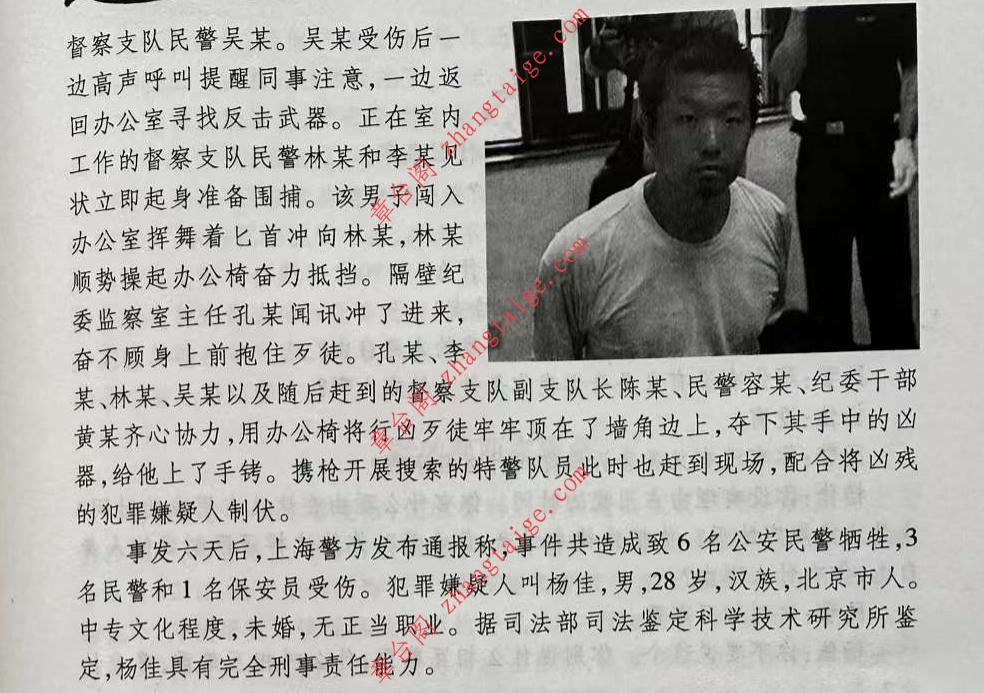 督察支队民警吴某。吴某受伤后一
边高声呼叫提醒同事注意，一边返
回办公室寻找反击武器。正在室内
工作的督察支队民警林某和李某见
状立即起身准备围捕。该男子闯入
办公室挥舞着匕首冲向林某，林某
顺势操起办公椅奋力抵挡。隔壁纪
委监察室主任孔某闻讯冲了进来，
奋不顾身上前抱住歹徒。孔某、李
某、林某、吴某以及随后赶到的督察支队副支队长陈某、民警容某、纪委干部
黄某齐心协力，用办公椅将行凶歹徒牢牢顶在了墙角边上，夺下其手中的凶
器，给他上了手铐。携枪开展搜索的特警队员此时也赶到现场，配合将凶残
的犯罪嫌疑人制伏。
事发六天后，上海警方发布通报称，事件共造成致6名公安民警牺牲，3
名民警和1名保安员受伤。犯罪嫌疑人叫杨佳，男，28岁，汉族，北京市人。
中专文化程度，未婚，无正当职业。据司法部司法鉴定科学技术研究所鉴
定，杨佳具有完全刑事责任能力。
章台阁 zhangtaige.com
章台阁 zhangtaige.com
章台阁 zhangtaige.com